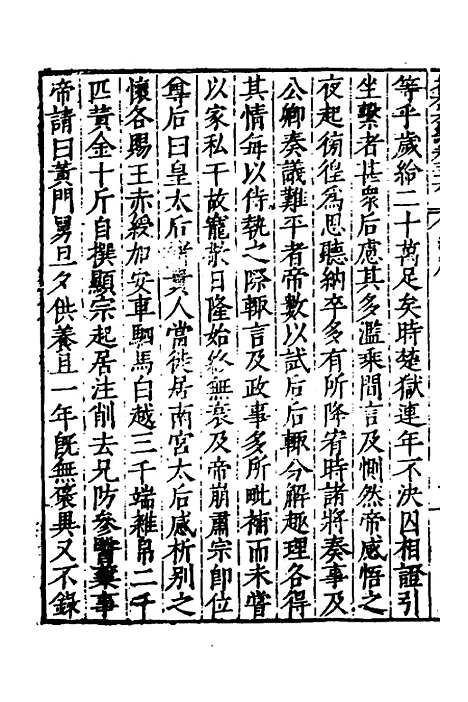 等乎歲給二十萬足矣時楚獄連年不決囚相證引
坐繫者甚衆后慮其多濫乘間言及惻然帝感悟之
夜起彷徨爲思聽納卒多有所降宥時諸將奏事及
公卿奏議難平者帝數以試后后輒分解趣理各得
其情每以侍執之際輒言及政事多所毗補而未嘗
以家私干故寵敬日隆始終無衰及帝崩肅宗即位
尊后曰皇太后諸貴人當徙居南宮太后感析别之
懷各賜王赤綬加安車駟馬白越三千端雜帛二千
匹黃金十斤自撰顯宗起居注削去兄防參醫藥事
帝請曰黃門舅旦夕供養且一年旣無襃異又不錄